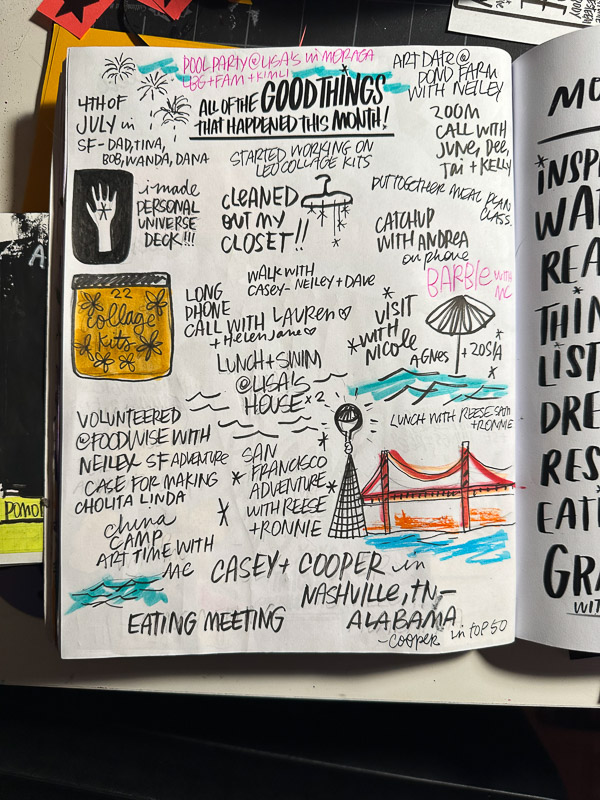 POOL PARTY @ LISA'S in MORAGA
LBG + FAM + KIMLI
ART DATE @
POND FARM
WITH NEILEY
4TH OF
JULY in
SF - DAD, TINA,
BOB, WANDA, DANA
ALL OF THE GOOD THINGS
THAT HAPPENED THIS MONTH!
ZOOM
CALL WITH
JUNE, DEE,
TAI + KELLY
STARTED WORKING ON
LEO COLLAGE KITS
i made
PERSONAL
UNIVERSE
DECK!!!
CLEANED
OUT MY
CLOSET!!
PUT TOGETHER MEAL PLAN
CLASS.
CATCHUP
WITH ANDREA
on phone
WALK WITH
CASEY - NEILEY + DAVE
BARBIE WITH
MC
22
collage
kits
LONG
PHONE
CALL WITH LAUREN
+ Helen Jane
VISIT
WITH
NICOLE
AGNES + ZOSIA
LUNCH + SWIM
@ LISA'S
HOUSE x2
LUNCH WITH REESE
+ RONNIE
VOLUNTEERED
@ FOODWISE WITH
NEILEY SF ADVENTURE
CASE FOR MAKING
CHOLITA LINDA
SAN
FRANCISCO
ADVENTURE
WITH REESE
+ RONNIE
china
CAMP
ART TIME WITH
MC
CASEY + COOPER in
NASHVILLE, TN -
ALABAMA
- COOPER in TOP 50
EATING MEETING
MO
INSP
WAT
REA
THIN
LIST
DRE
RES
EATI
GRA
WIT